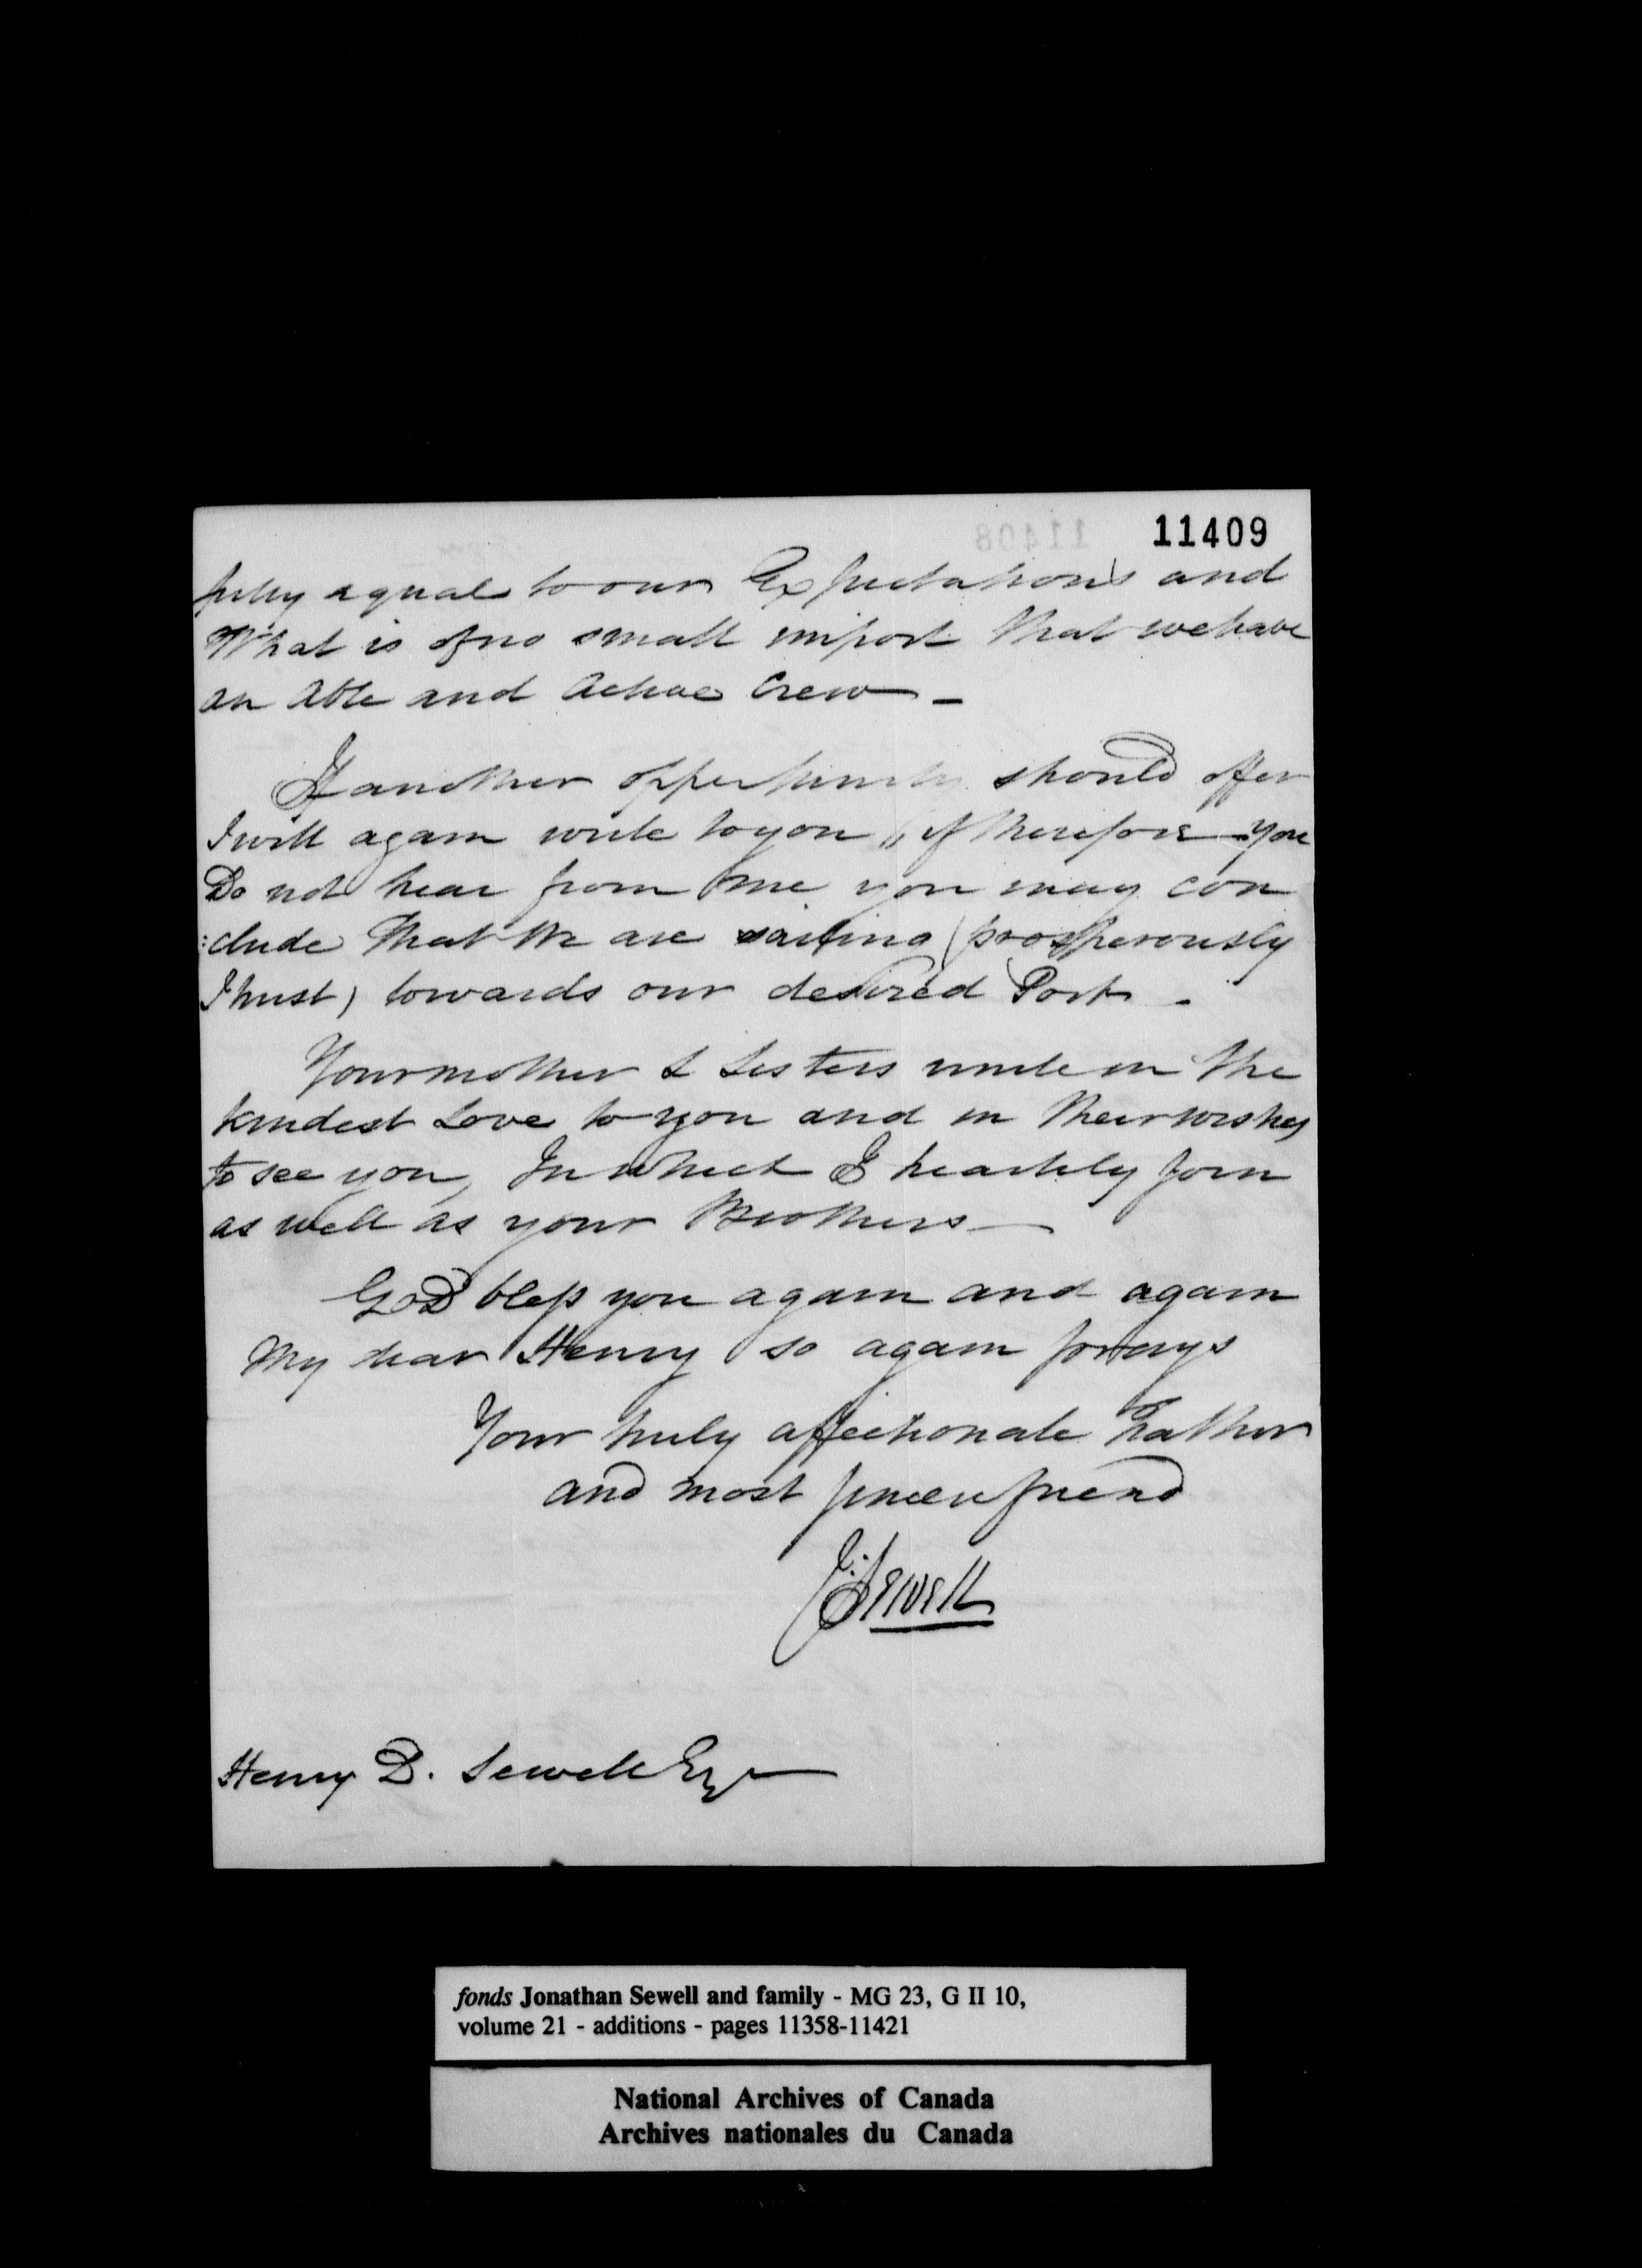 11409
fully equal to our Expectations and
What is of no small import that we have
an Able and Active Crew —
If another opportunity should offer
I will again write to you, if therefore you
Do not hear from me you may con
:clude that We are sailing (prosperously
I trust) towards our desired Port -
Your mother & Sisters unite in the
kindest Love to you and in their wishes
to see you, In which I heartily join
as well as your Brothers —
God bless you again and again
My dear Henry so again prays
Your truly affectionate Father
and most sincere friend
J: Sewell
Henry D. Sewell Esqr
fonds Jonathan Sewell and family - MG 23, G II 10,
volume 21 - additions - pages 11358-11421
National Archives of Canada
Archives nationales du Canada